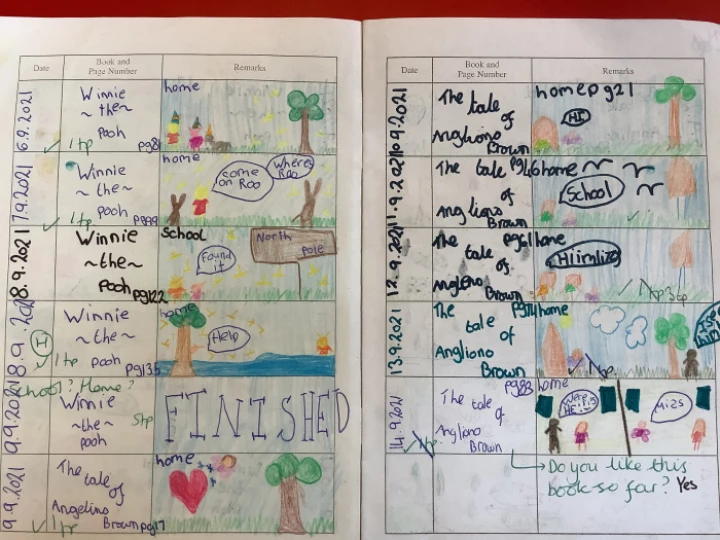 Date Book and Page Number Remarks
6.9.2021
Winnie
~the~
pooh pg81
1hp
home
7.9.2021
Winnie
~the~
pooh pg99
1hp
home
come on Roo
Wheres Roo
8.9.2021
Winnie
~the~
pooh pg122
School
Found it
North pole
18.9.2021
H
Winnie
~the~
pooh pg135
1hp
home
Help
School? Home?
9.9.2021
Winnie
~the~
pooh
5hp
FINISHED
9.9.2021
The tale
of
Angelino
Brown pg17
1hp
home
Date Book and Page Number Remarks
10.9.2021
The tale
of
Angliono
Brown
home pg21
HI
11.9.2021
The tale pg46
of
Angliono
Brown
home
School
12.9.2021
The tale pg61
of
Angleno
Brown
home
Hi imliza
3hp
13.9.2021
The tale pg74
of
Angliono
Brown
home
14.9.2021
pg83
The tale
of
Angliono
Brown
home
Do you like this
book so far? Yes